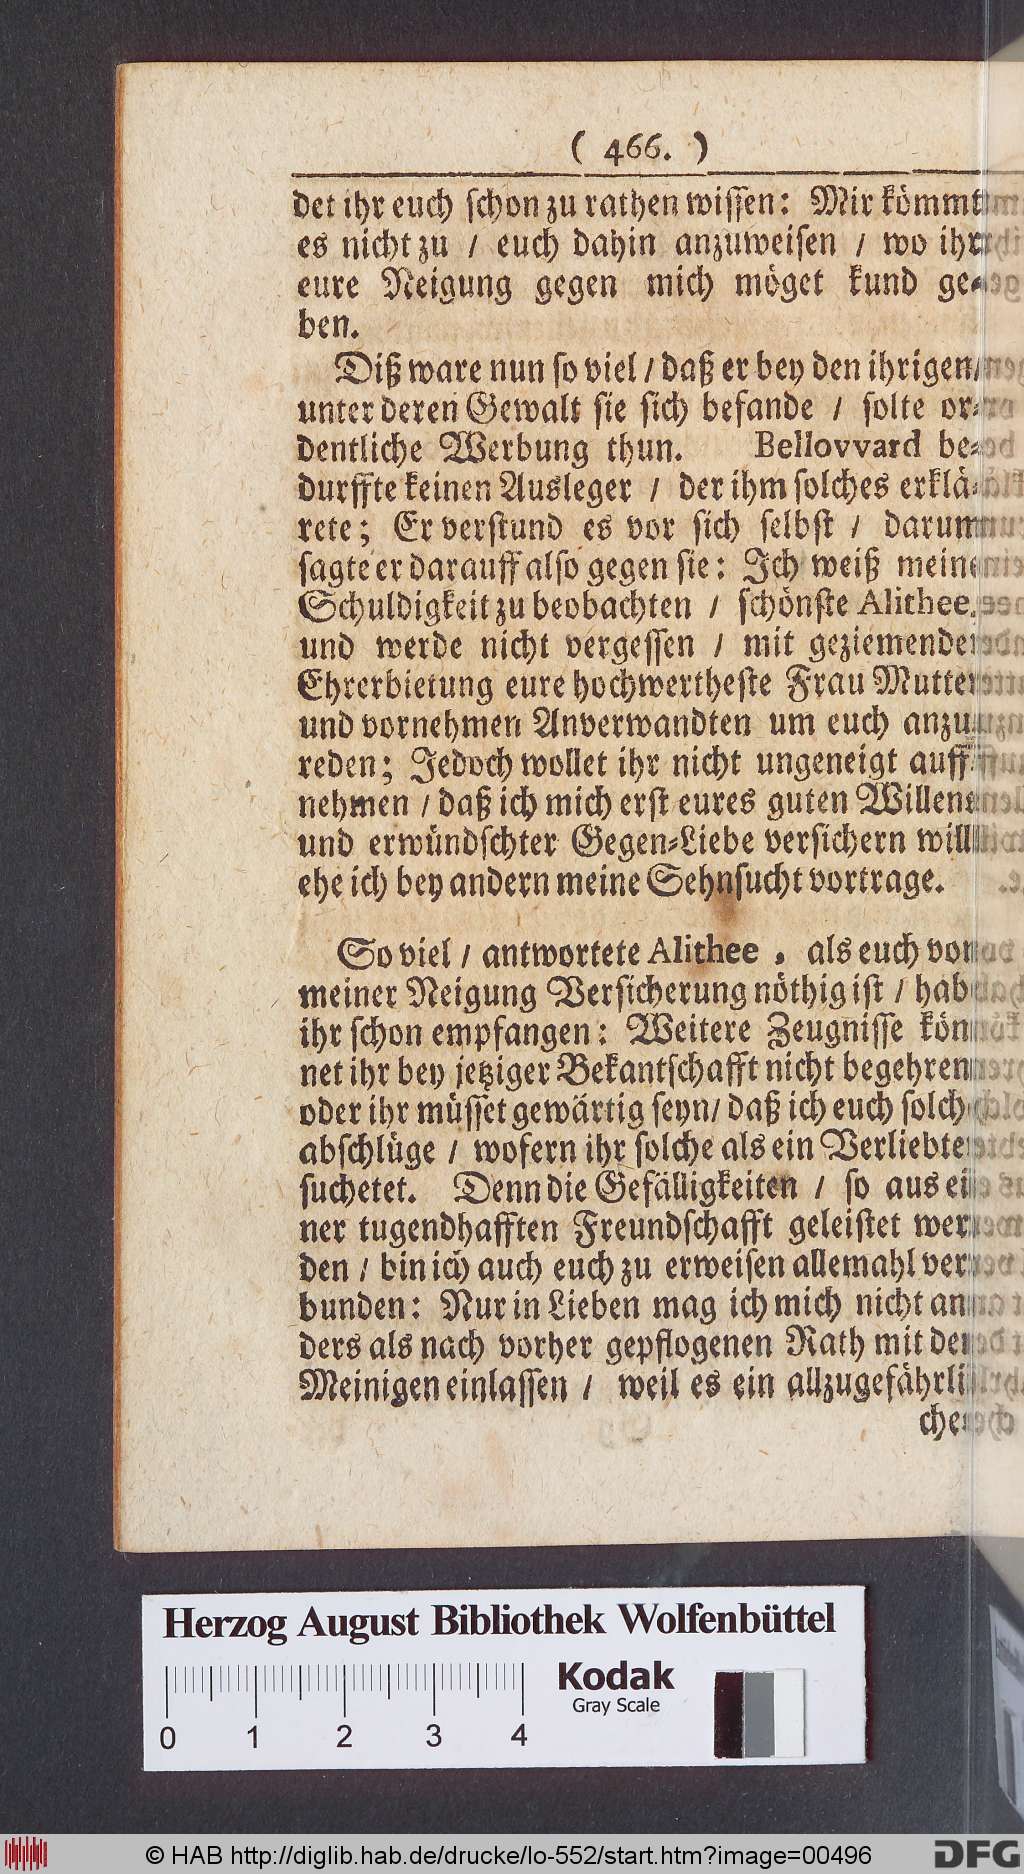 ( 466. )
det ihr euch schon zu rathen wissen: Mir kömmt
es nicht zu / euch dahin anzuweisen / wo ihr
eure Neigung gegen mich möget kund ge-
ben.
Diß ware nun so viel / daß er bey den ihrigen /
unter deren Gewalt sie sich befande / solte or-
dentliche Werbung thun. Bellovvard be-
durffte keinen Ausleger / der ihm solches erklä-
rete; Er verstund es vor sich selbst / darum
sagte er darauff also gegen sie: Ich weiß meine
Schuldigkeit zu beobachten / schönste Alithee,
und werde nicht vergessen / mit geziemender
Ehrerbietung eure hochwertheste Frau Mutter
und vornehmen Anverwandten um euch anzu-
reden; Jedoch wollet ihr nicht ungeneigt auff-
nehmen / daß ich mich erst eures guten Willens
und erwündschter Gegen-Liebe versichern will
ehe ich bey andern meine Sehnsucht vortrage.
So viel / antwortete Alithee, als euch von
meiner Neigung Versicherung nöthig ist / habt
ihr schon empfangen: Weitere Zeugnisse kön-
net ihr bey jetziger Bekantschafft nicht begehren
oder ihr müsset gewärtig seyn / daß ich euch solche
abschlüge / wofern ihr solche als ein Verliebter
suchetet. Denn die Gefälligkeiten / so aus ei-
ner tugendhafften Freundschafft geleistet wer-
den / bin ich auch euch zu erweisen allemahl ver-
bunden: Nur in Lieben mag ich mich nicht an-
ders als nach vorher gepflogenen Rath mit den
Meinigen einlassen / weil es ein allzugefährli-
cher
Herzog August Bibliothek Wolfenbüttel
Kodak
Gray Scale
0 1 2 3 4
© HAB http://diglib.hab.de/drucke/lo-552/start.htm?image=00496
DFG